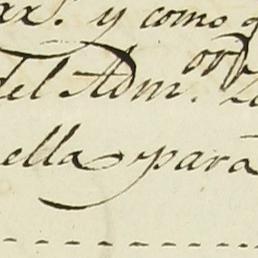 y como
del Adm.or
ella para